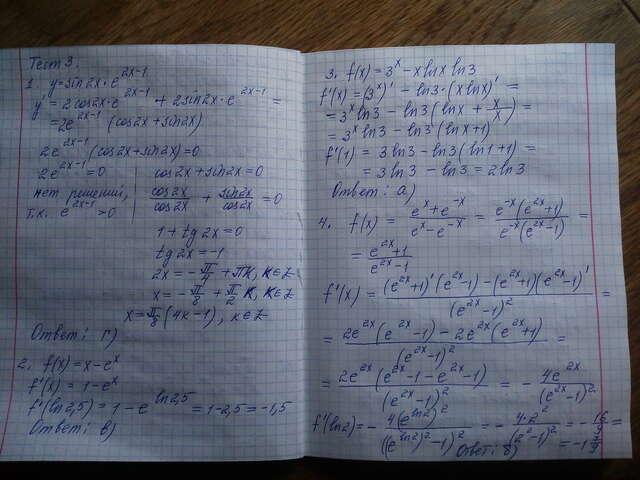 Тест 3.
1. y = sin2x · e^(2x-1)
y' = 2cos2x · e^(2x-1) + 2sin2x · e^(2x-1) =
= 2e^(2x-1) (cos2x + sin2x)
2e^(2x-1) (cos2x + sin2x) = 0
2e^(2x-1) = 0 | cos2x + sin2x = 0
нет решений, | cos2x/cos2x + sin2x/cos2x = 0
т.к. e^(2x-1) > 0
1 + tg2x = 0
tg2x = -1
2x = -π/4 + πk, k∈Z
x = -π/8 + π/2 k, k∈Z
x = π/8 (4k-1), k∈Z
Ответ: г)
2. f(x) = x - e^x
f'(x) = 1 - e^x
f'(ln2,5) = 1 - e^(ln2,5) = 1 - 2,5 = -1,5
Ответ: в)
3. f(x) = 3^x - x lnx ln3
f'(x) = (3^x)' - ln3 · (x lnx)' =
= 3^x ln3 - ln3 (lnx + x/x) =
= 3^x ln3 - ln3 (lnx + 1)
f'(1) = 3ln3 - ln3 (ln1 + 1) =
= 3ln3 - ln3 = 2ln3
Ответ: а)
4. f(x) = (e^x + e^(-x))/(e^x - e^(-x)) = (e^(-x)(e^(2x)+1))/(e^(-x)(e^(2x)-1)) =
= (e^(2x)+1)/(e^(2x)-1)
f'(x) = ((e^(2x)+1)'(e^(2x)-1) - (e^(2x)+1)(e^(2x)-1)')/(e^(2x)-1)^2 =
= (2e^(2x)(e^(2x)-1) - 2e^(2x)(e^(2x)+1))/(e^(2x)-1)^2 =
= (2e^(2x)(e^(2x)-1-e^(2x)-1))/(e^(2x)-1)^2 = - 4e^(2x)/(e^(2x)-1)^2
f'(ln2) = - 4(e^(ln2))^2/((e^(ln2))^2-1)^2 = - 4·2^2/(2^2-1)^2 = - 16/9 =
= -1 7/9
Ответ: б)